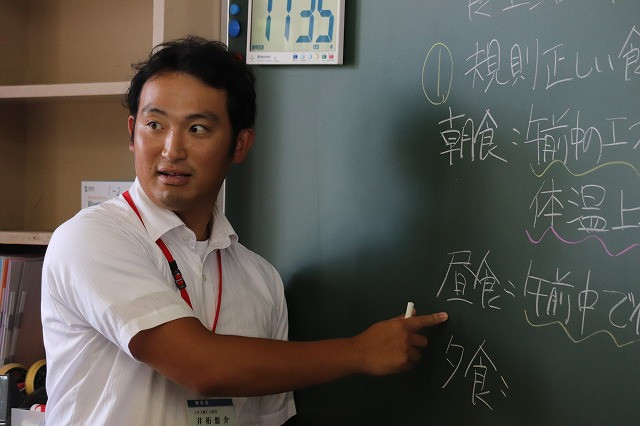 11:35
① 規則正しい食
朝食：午前中のエネ
体温上
昼食：午前中で
夕食：
井裄悠介